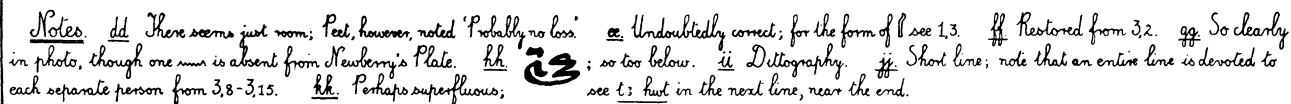 Notes. dd There seems just room; Peet, however, noted 'Probably no loss.' ee. Undoubtedly correct; for the form of 𓋴 see 1,3. ff Restored from 3,2. gg. So clearly
in photo, though one 𓈖 is absent from Newberry's Plate. hh. ; so too below. ii Dittography. jj. Short line; note that an entire line is devoted to
each separate person from 3,8-3,15. kk. Perhaps superfluous; see t; hwt in the next line, near the end.